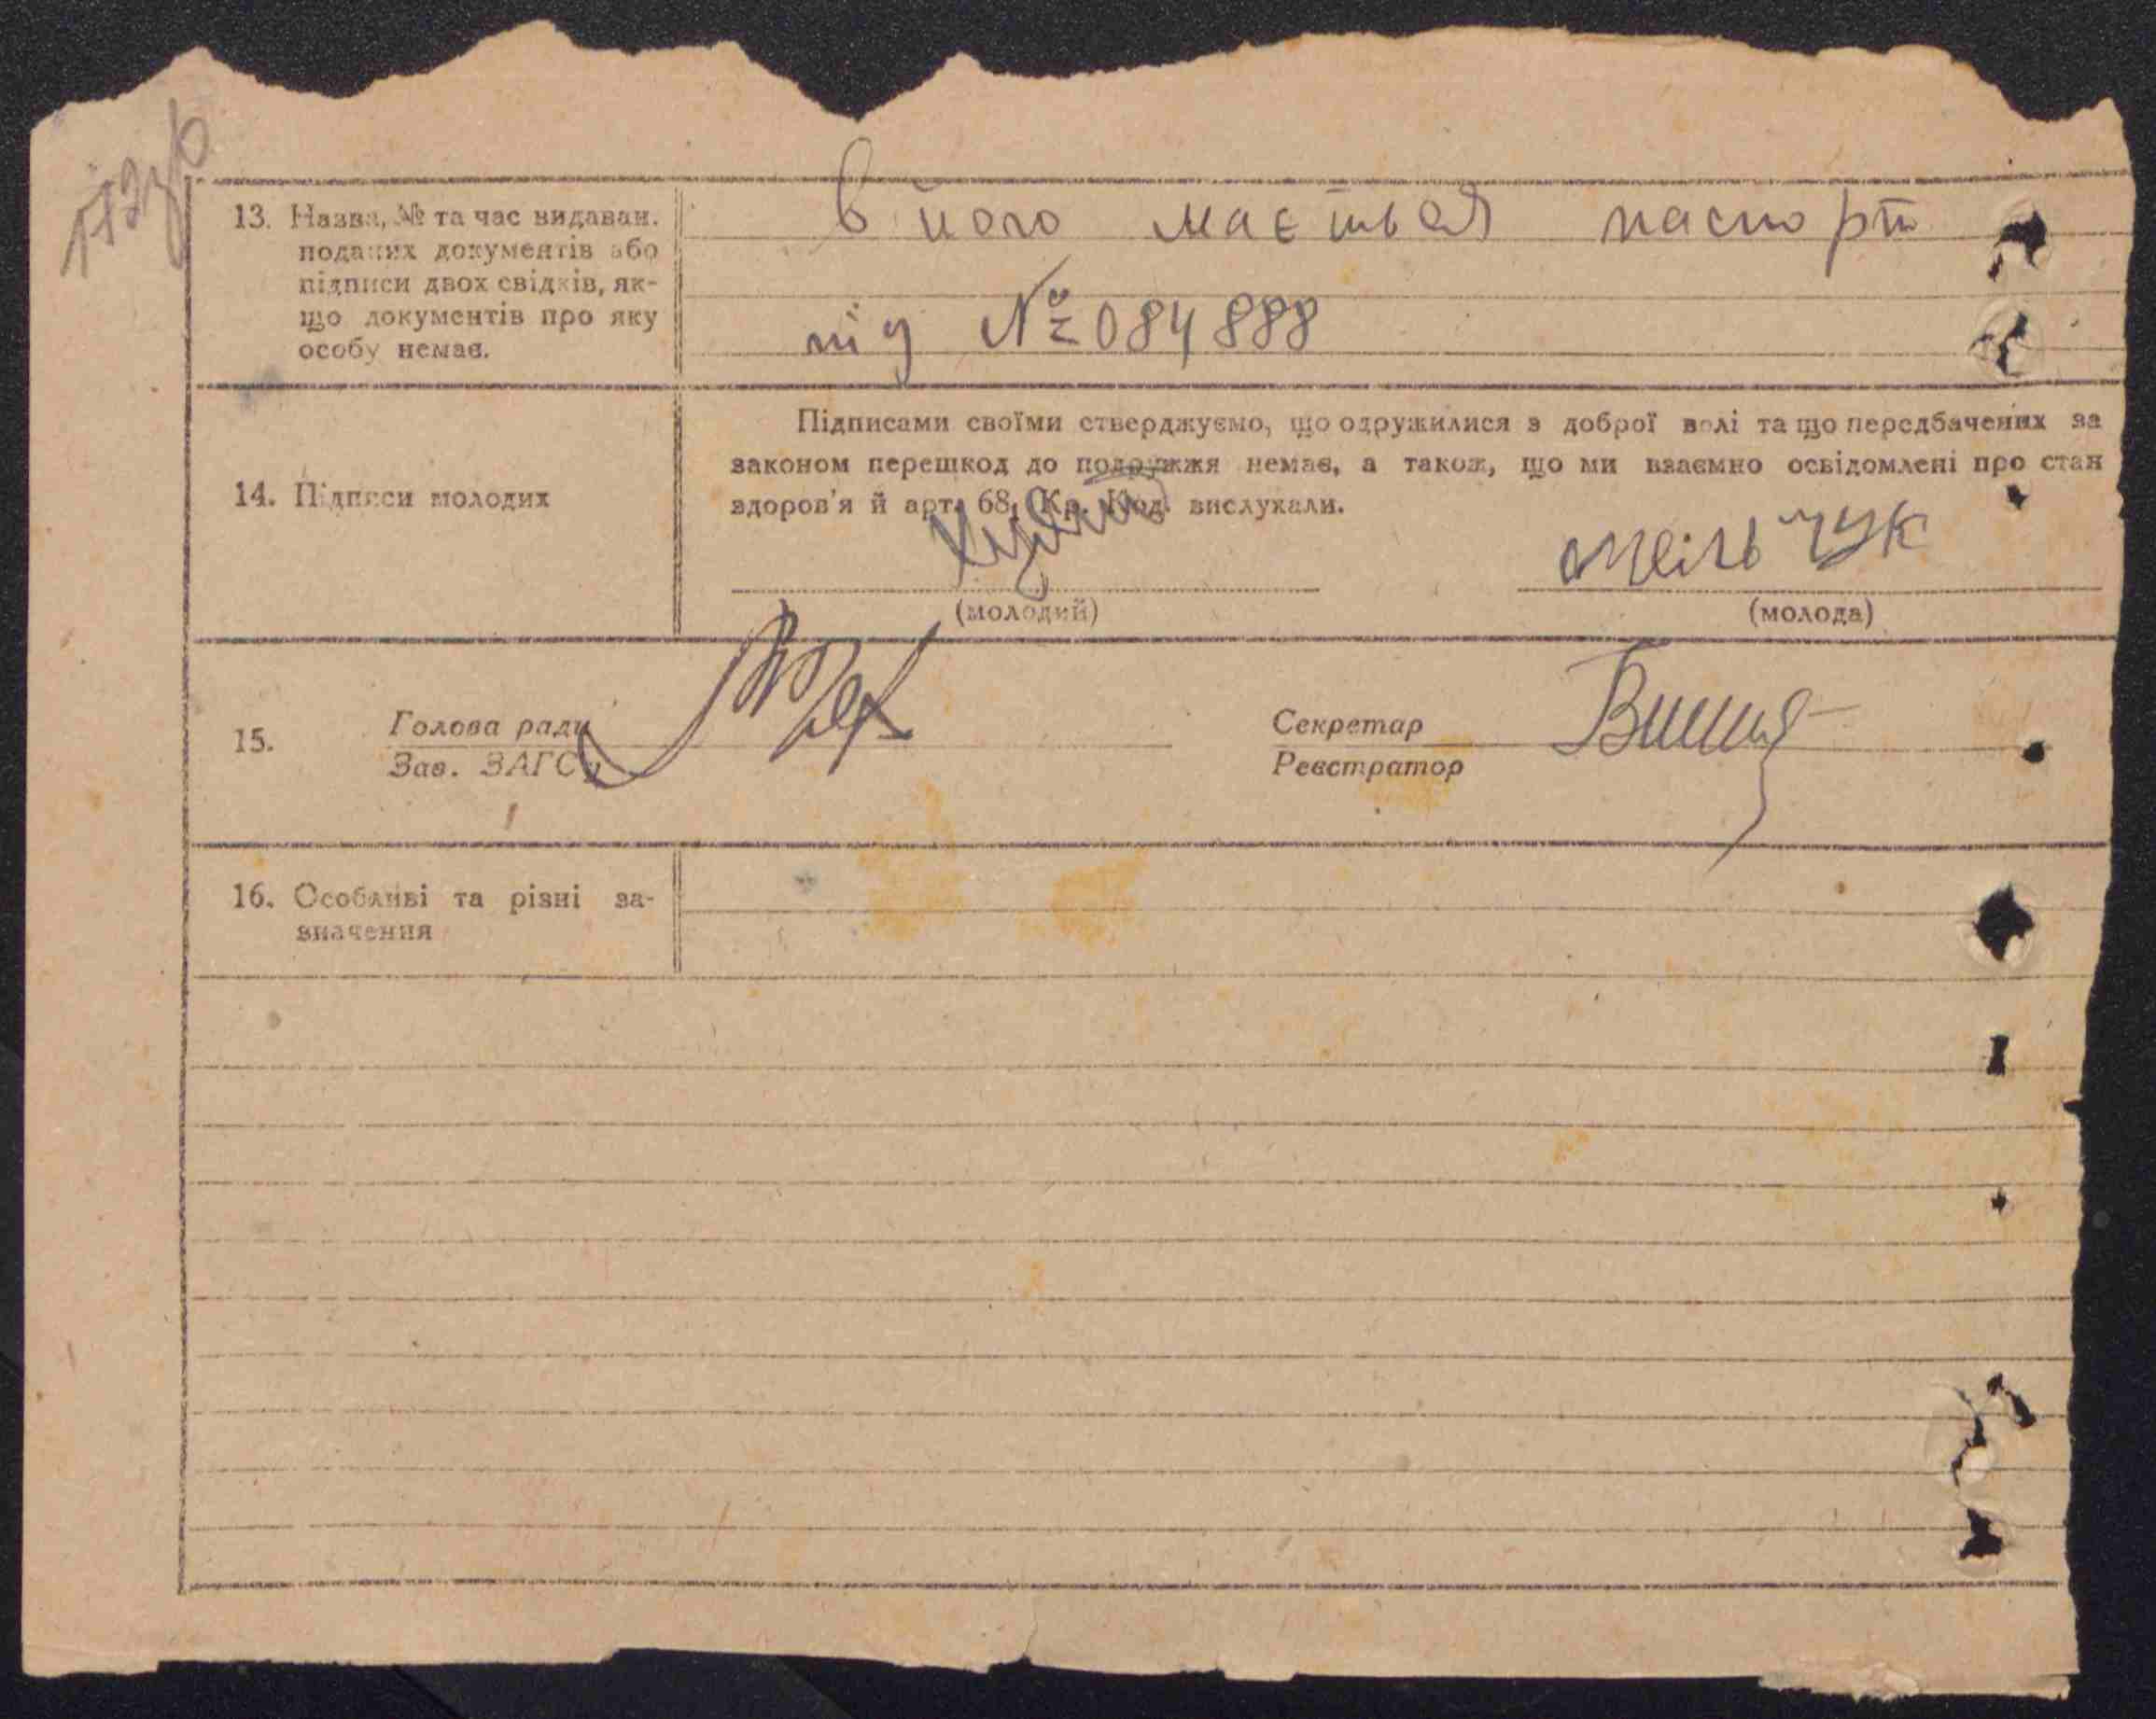 13. Назва, № та час видаван.
поданих документів або
підписи двох свідків, як-
що документів про яку
особу немає.
в його мається паспорт
під № 084888
14. Підписи молодих
Підписами своїми стверджуємо, що одружилися з доброї волі та що передбачених за
законом перешкод до подружжя немає, а також, що ми взаємно освідомлені про стан
здоров'я й арт. 68, Кр. Код. вислухали.
Мельчук
(молодий) (молода)
15. Голова ради
Зав. ЗАГСу
Секретар
Реєстратор
16. Особливі та різні за-
значення